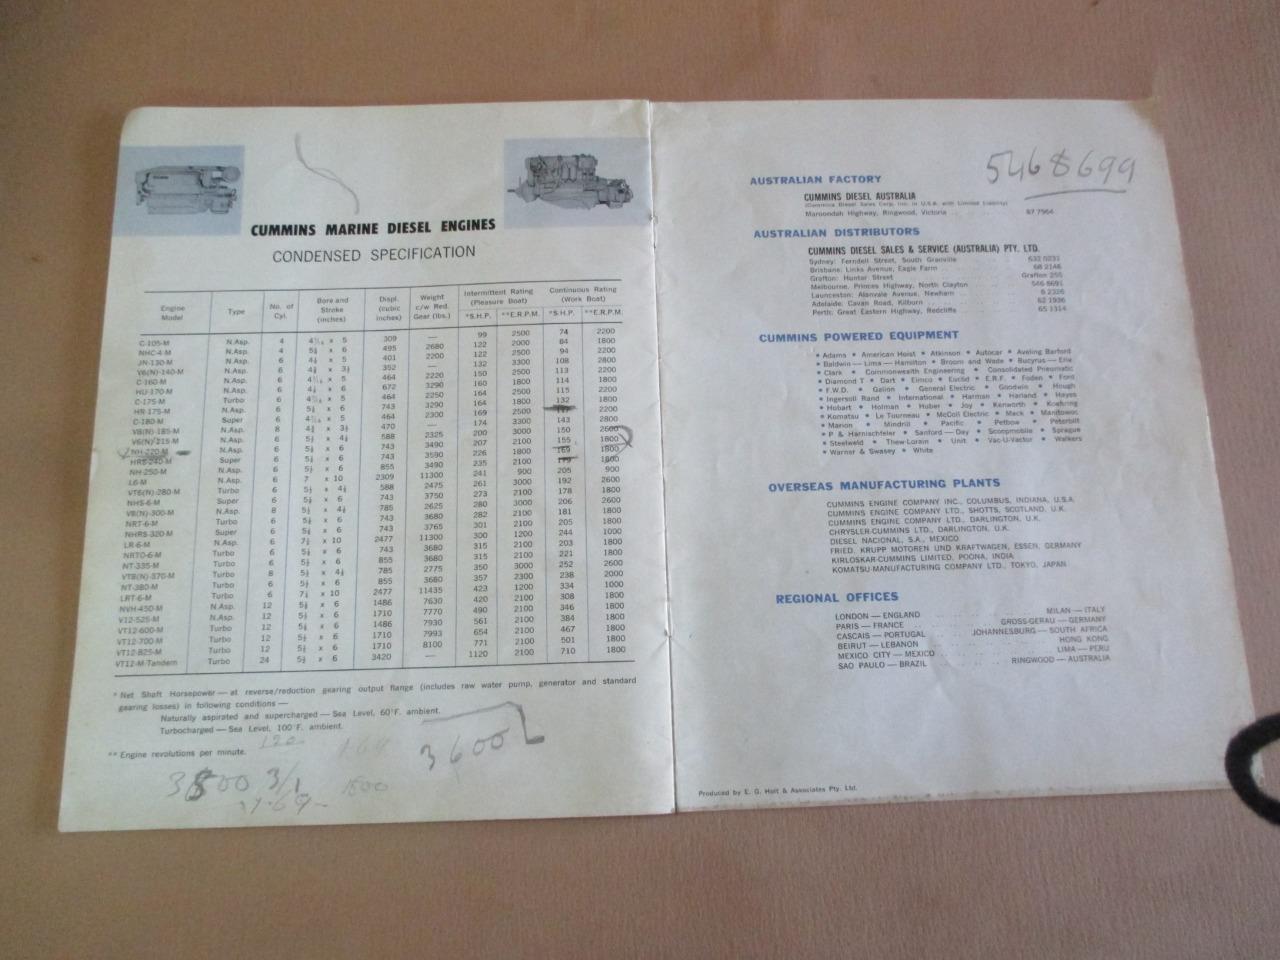 CUMMINS MARINE DIESEL ENGINES
CONDENSED SPECIFICATION
Engine Model Type No. of Cyl. Bore and Stroke (inches) Displ. (cubic inches) Weight c/w Red. Gear (lbs.) Intermittent Rating (Pleasure Boat) *S.H.P. **E.R.P.M. Continuous Rating (Work Boat) *S.H.P. **E.R.P.M.
C-105-M N.Asp. 4 x 5 309 — 99 2500 74 2200
NHC-4-M N.Asp. 4 x 6 495 2680 122 2000 84 1800
JN-130-M N.Asp. 6 x 5 401 2200 122 2500 94 2200
V6(N)-140-M N.Asp. 6 x 352 — 132 3300 108 2800
C-160-M N.Asp. 6 x 5 464 2220 150 2500 113 2200
HU-170-M N.Asp. 6 x 6 672 3290 160 1800 114 1800
C-175-M Turbo 6 x 5 464 2250 164 2500 115 2200
HR-175-M N.Asp. 6 x 6 743 3290 164 1800 132 1800
C-180-M Super 6 x 5 464 2300 169 2500 2200
V8(N)-185-M N.Asp. 8 x 470 — 174 3300 143 2800
V6(N)-215-M N.Asp. 6 x 588 2325 200 3000 150 2600
NH-220-M N.Asp. 6 x 6 743 3490 207 2100 155 1800
HRS-240-M Super 6 x 6 743 3590 226 1800 169 1800
NH-250-M N.Asp. 6 x 6 855 3490 235 2100 179 1800
L6-M N.Asp. 6 7 x 10 2309 11300 241 900 205 900
VT6(N)-280-M Turbo 6 x 588 2475 261 3000 192 2600
NHS-6-M Super 6 x 6 743 3750 273 2100 178 1800
V8(N)-300-M N.Asp. 8 x 785 2625 280 3000 206 2600
NRT-6-M Turbo 6 x 6 743 3680 282 2100 181 1800
NHRS-320-M Super 6 x 6 743 3765 301 2100 205 1800
LR-6-M N.Asp. 6 x 10 2477 11300 300 1200 244 1000
NRTO-6-M Turbo 6 x 6 743 3680 315 2100 203 1800
NT-335-M Turbo 6 x 6 855 3680 315 2100 221 1800
VT8(N)-370-M Turbo 8 x 785 2775 350 3000 252 2600
NT-380-M Turbo 6 x 6 855 3680 357 2300 238 2000
LRT-6-M Turbo 6 x 10 2477 11435 423 1200 334 1000
NVH-450-M N.Asp. 12 x 6 1486 7630 420 2100 308 1800
V12-525-M N.Asp. 12 x 6 1710 7770 490 2100 346 1800
VT12-600-M Turbo 12 x 6 1486 7930 561 2100 384 1800
VT12-700-M Turbo 12 x 6 1710 7993 654 2100 467 1800
VT12-825-M Turbo 12 x 6 1710 8100 771 2100 501 1800
VT12-M-Tandem Turbo 24 x 6 3420 — 1120 2100 710 1800
* Net Shaft Horsepower — at reverse/reduction gearing output flange (includes raw water pump, generator and standard
gearing losses) in following conditions —
Naturally aspirated and supercharged — Sea Level, 60°F. ambient.
Turbocharged — Sea Level, 100°F. ambient.
** Engine revolutions per minute.
3600
3/1
1800
5468699
AUSTRALIAN FACTORY
CUMMINS DIESEL AUSTRALIA
(Cummins Diesel Sales Corp. Inc. in U.S.A. with Limited Liability)
Maroondah Highway, Ringwood, Victoria 87 7964
AUSTRALIAN DISTRIBUTORS
CUMMINS DIESEL SALES & SERVICE (AUSTRALIA) PTY. LTD.
Sydney: Ferndell Street, South Granville 632 0231
Brisbane: Links Avenue, Eagle Farm 68 2146
Grafton: Hunter Street Grafton 255
Melbourne, Princes Highway, North Clayton 546 8691
Launceston: Alanvale Avenue, Newham 6 2326
Adelaide: Cavan Road, Kilburn 62 1936
Perth: Great Eastern Highway, Redcliffe 65 1314
CUMMINS POWERED EQUIPMENT
• Adams • American Hoist • Atkinson • Autocar • Aveling Barford
• Baldwin — Lima — Hamilton • Broom and Wade • Bucyrus — Erie
• Clark • Commonwealth Engineering • Consolidated Pneumatic
• Diamond T • Dart • Eimco • Euclid • E.R.F. • Foden • Ford
• F.W.D. • Galion • General Electric • Goodwin • Hough
• Ingersoll Rand • International • Harman • Harland • Hayes
• Hobart • Holman • Huber • Joy • Kenworth • Koehring
• Komatsu • Le Tourneau • McColl Electric • Mack • Manitowoc
• Marion • Mindrill • Pacific • Petbow • Peterbilt
• P & Harnischfeger • Sanford — Day • Scoopmobile • Sprague
• Steelweld • Thew-Lorain • Unit • Vac-U-Vactor • Walkers
• Warner & Swasey • White
OVERSEAS MANUFACTURING PLANTS
CUMMINS ENGINE COMPANY INC., COLUMBUS, INDIANA, U.S.A.
CUMMINS ENGINE COMPANY LTD., SHOTTS, SCOTLAND, U.K.
CUMMINS ENGINE COMPANY LTD., DARLINGTON, U.K.
CHRYSLER-CUMMINS LTD., DARLINGTON, U.K.
DIESEL NACIONAL, S.A., MEXICO
FRIED. KRUPP MOTOREN UND KRAFTWAGEN, ESSEN, GERMANY
KIRLOSKAR-CUMMINS LIMITED, POONA, INDIA
KOMATSU-MANUFACTURING COMPANY LTD., TOKYO, JAPAN
REGIONAL OFFICES
LONDON — ENGLAND MILAN — ITALY
PARIS — FRANCE GROSS-GERAU — GERMANY
CASCAIS — PORTUGAL JOHANNESBURG — SOUTH AFRICA
BEIRUT — LEBANON HONG KONG
MEXICO CITY — MEXICO LIMA — PERU
SAO PAULO — BRAZIL RINGWOOD — AUSTRALIA
Produced by E. G. Holt & Associates Pty. Ltd.